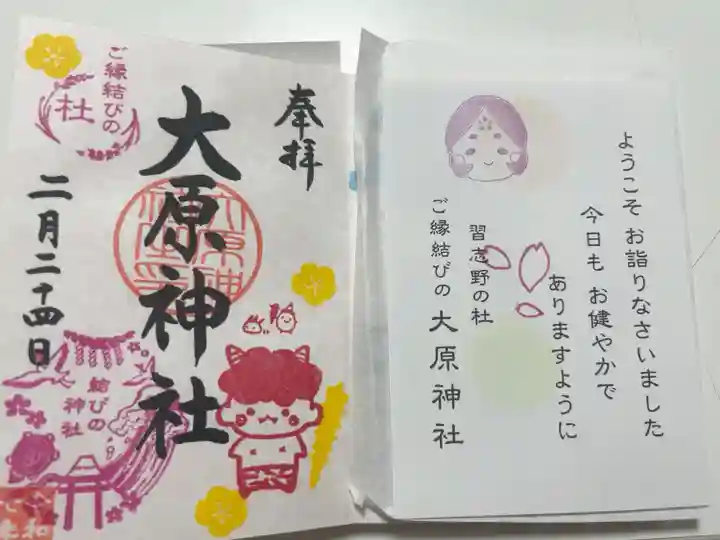 奉拝
大原神社
二月二十四日
ご縁結びの
杜
結びの
神社
ようこそ お詣りなさいました
今日も お健やかで
ありますように
習志野の杜
ご縁結びの 大原神社